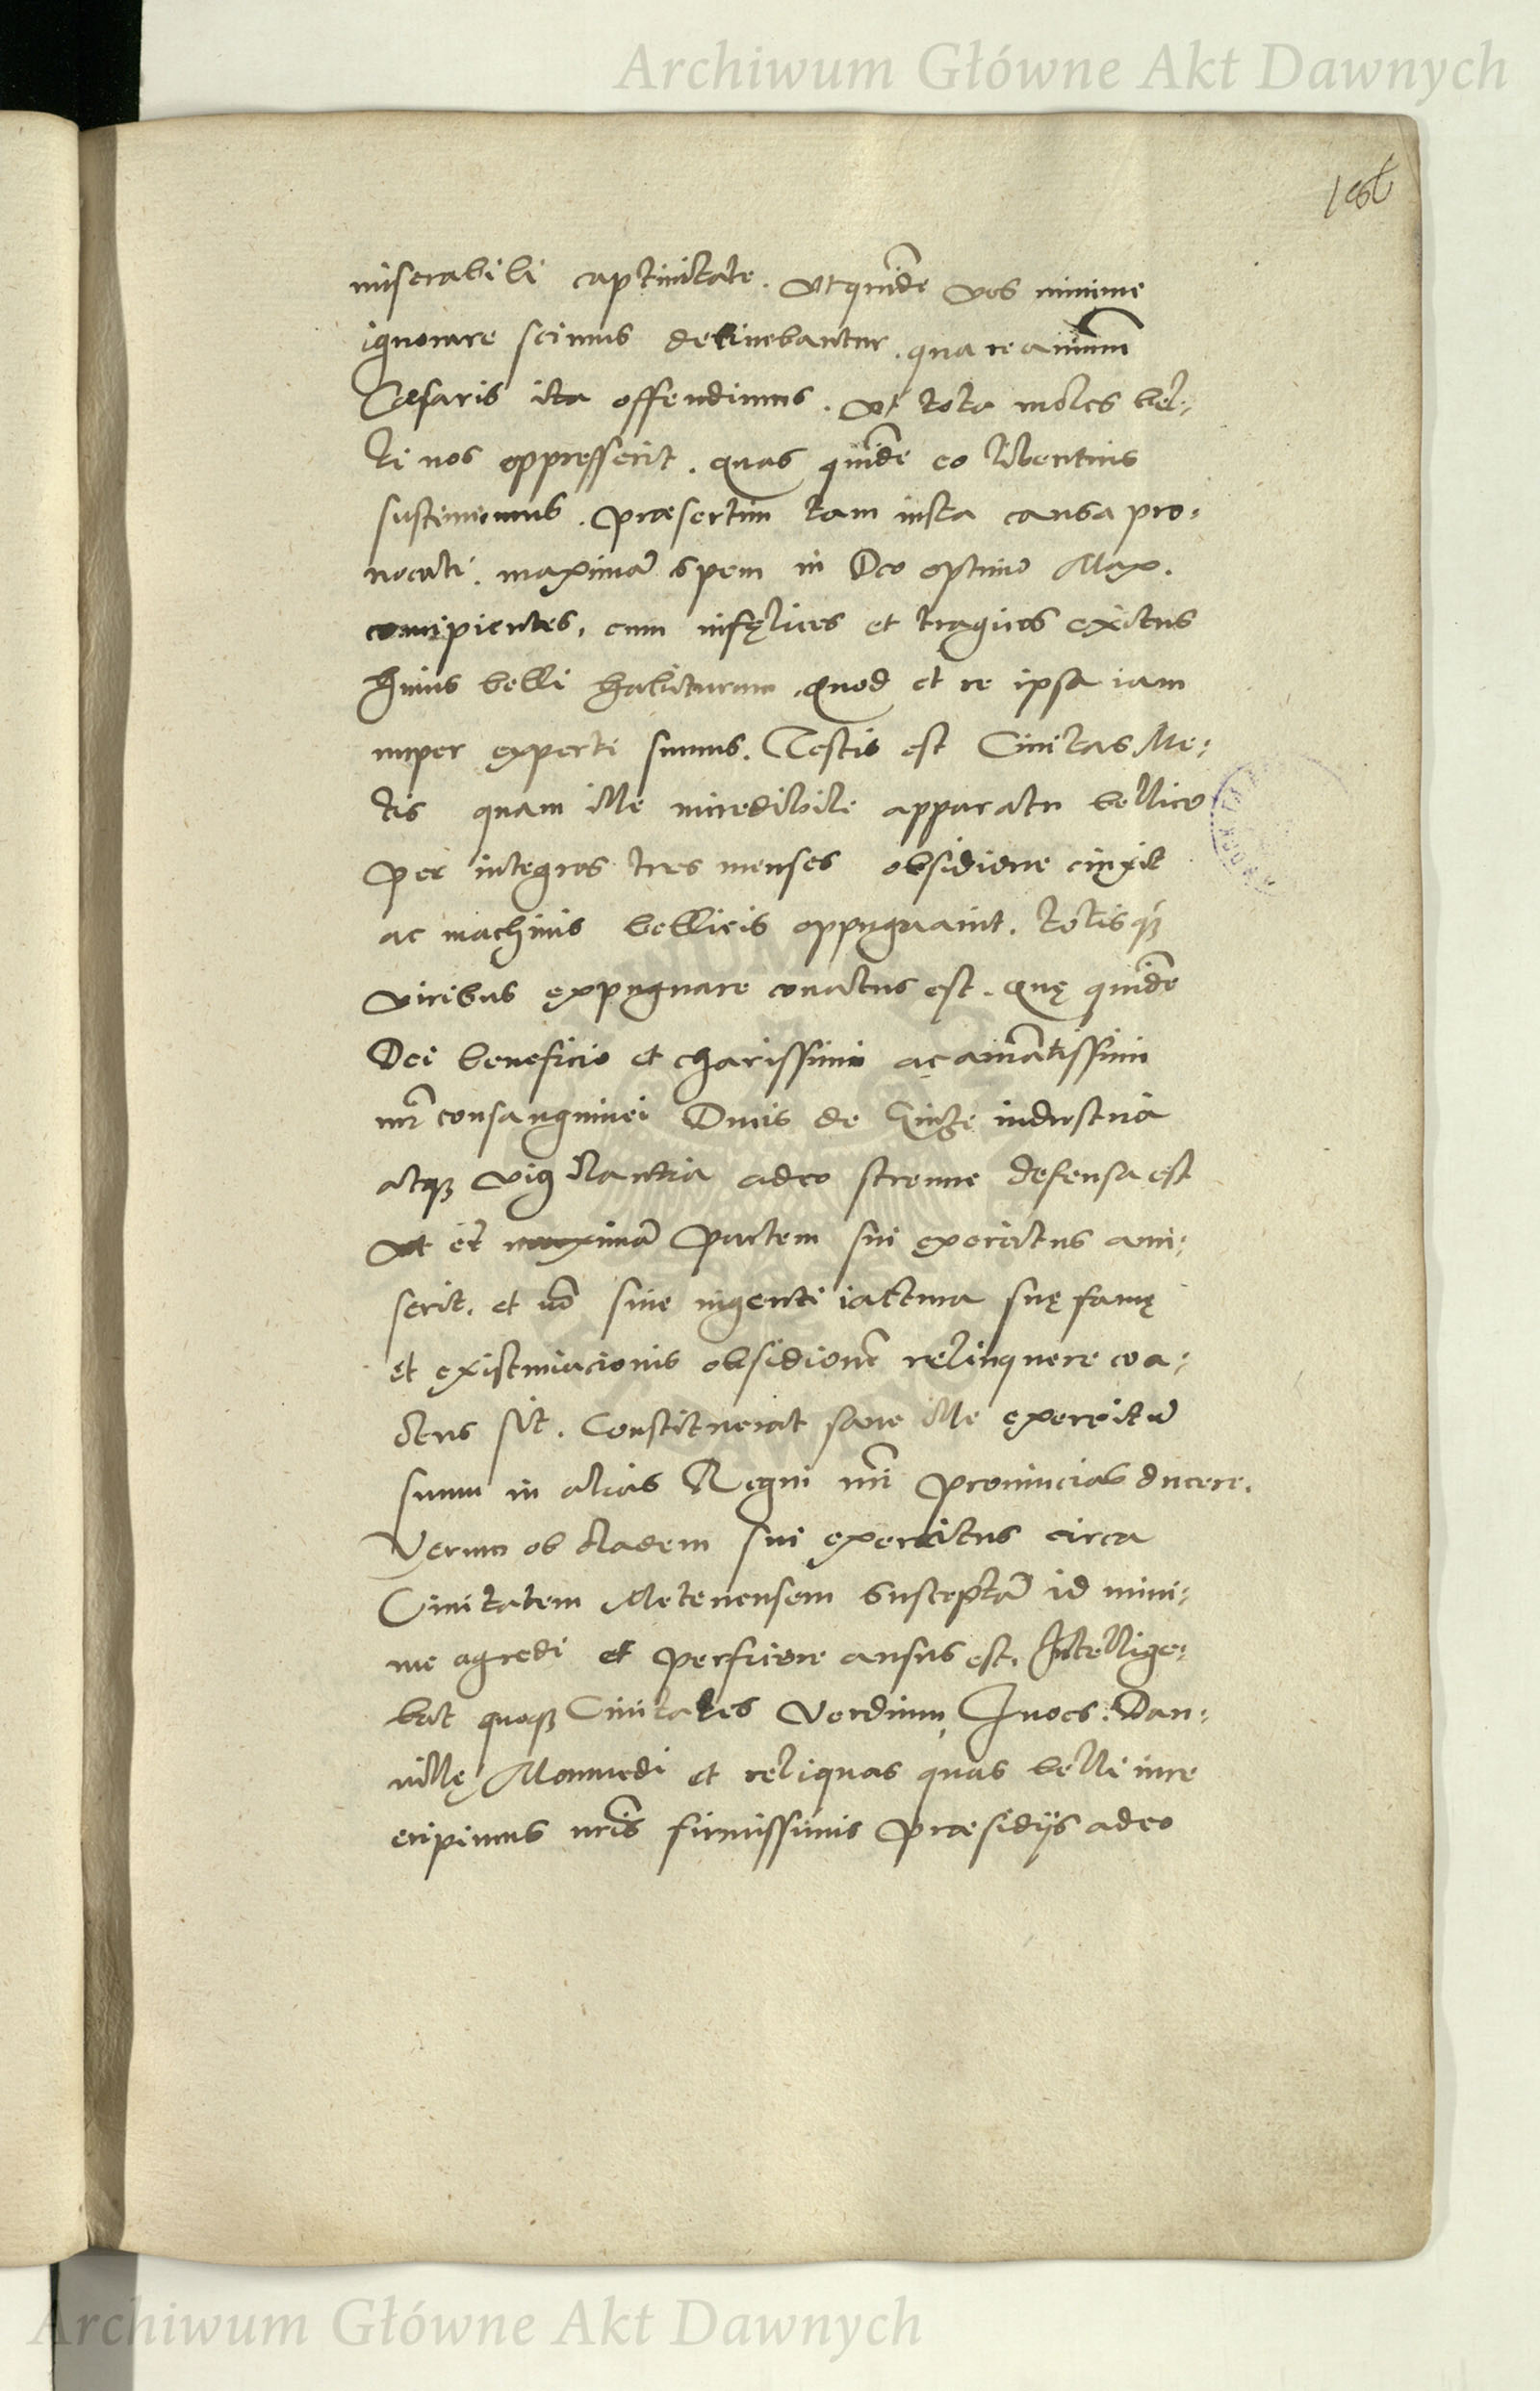 Archiwum Główne Akt Dawnych
miserabili captiuitate. Vt quidē vos minime
ignorare scimus detinebantur. qua re animum
Cæsaris ita offendimus. Vt tota moles bel-
li nos oppresserit. quas quidē eo libentius
sustinuimus. præsertim tam iusta causa pro-
uocati. maximā spem in Deo optimo Max.
concipientes, eum infęlices et tragicos exitus
huius belli habiturum. Quod et re ipsa iam
nuper experti sumus. Testis est Ciuitas Me-
tis quam ille incredibile apparatu bellico
per integros tres menses obsidione cinxit
ac machinis bellicis oppugnauit. totisq̃
viribus expugnare conatus est. Quę quidē
Dei beneficio et charissimi ac amātissimi
nr̃i consanguinei Ducis de Guize industria
atq̃ vigilantia adeo strenue defensa est
Vt et maximā partem sui exercitus ami-
serit. et nō sine ingenti iactura suę famę
et existimacionis obsidionē relinquere coa-
ctus sit. Constituerat sane ille exercitū
suum in alias Regni nr̃i prouincias ducere.
Verum ob cladem sui exercitus circa
Ciuitatem Metenensem susceptā id mini-
me agredi et perficere ausus est. Intellige-
bat quoq̃ Ciuitates Verdium, Iuoes. Dan-
uillę Monmedi et reliquas quas belli iure
eripimus nr̃is firmissimis præsidijs adeo
Archiwum Główne Akt Dawnych